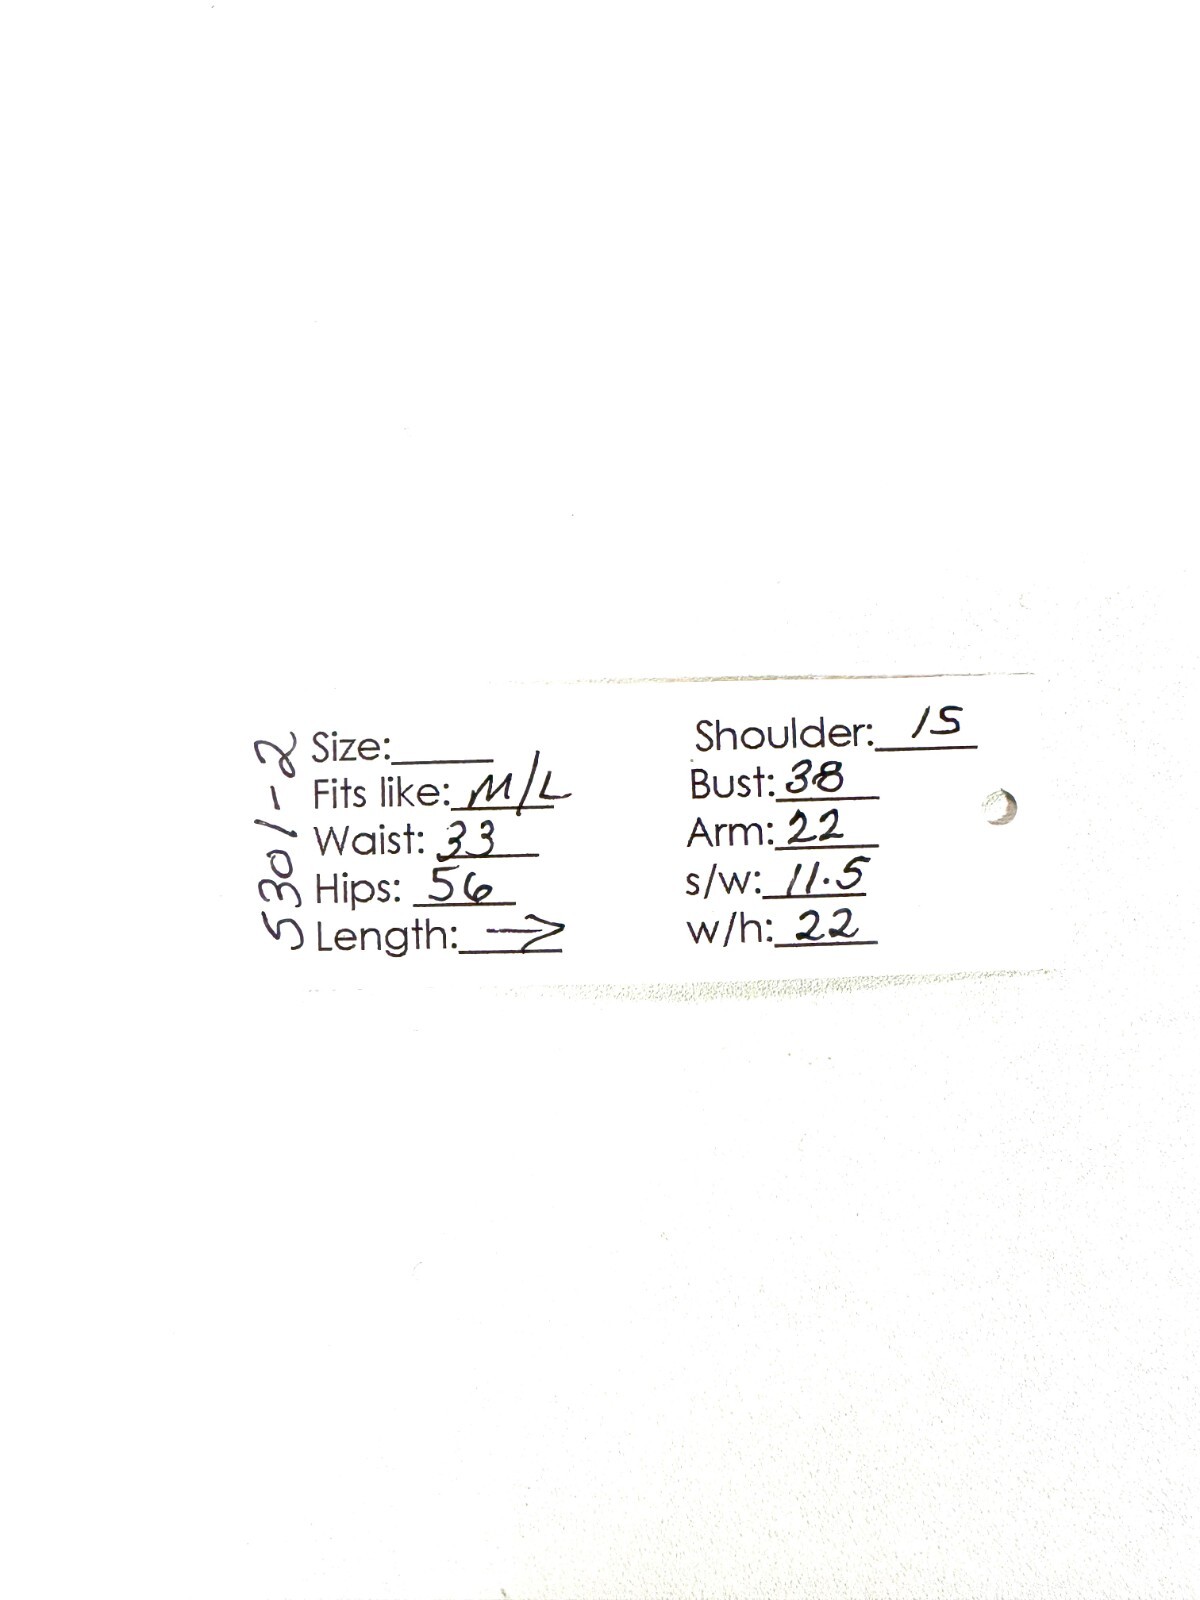 5301-2
Size:
Fits like: M/L
Waist: 33
Hips: 56
Length: →
Shoulder: 15
Bust: 38
Arm: 22
s/w: 11.5
w/h: 22